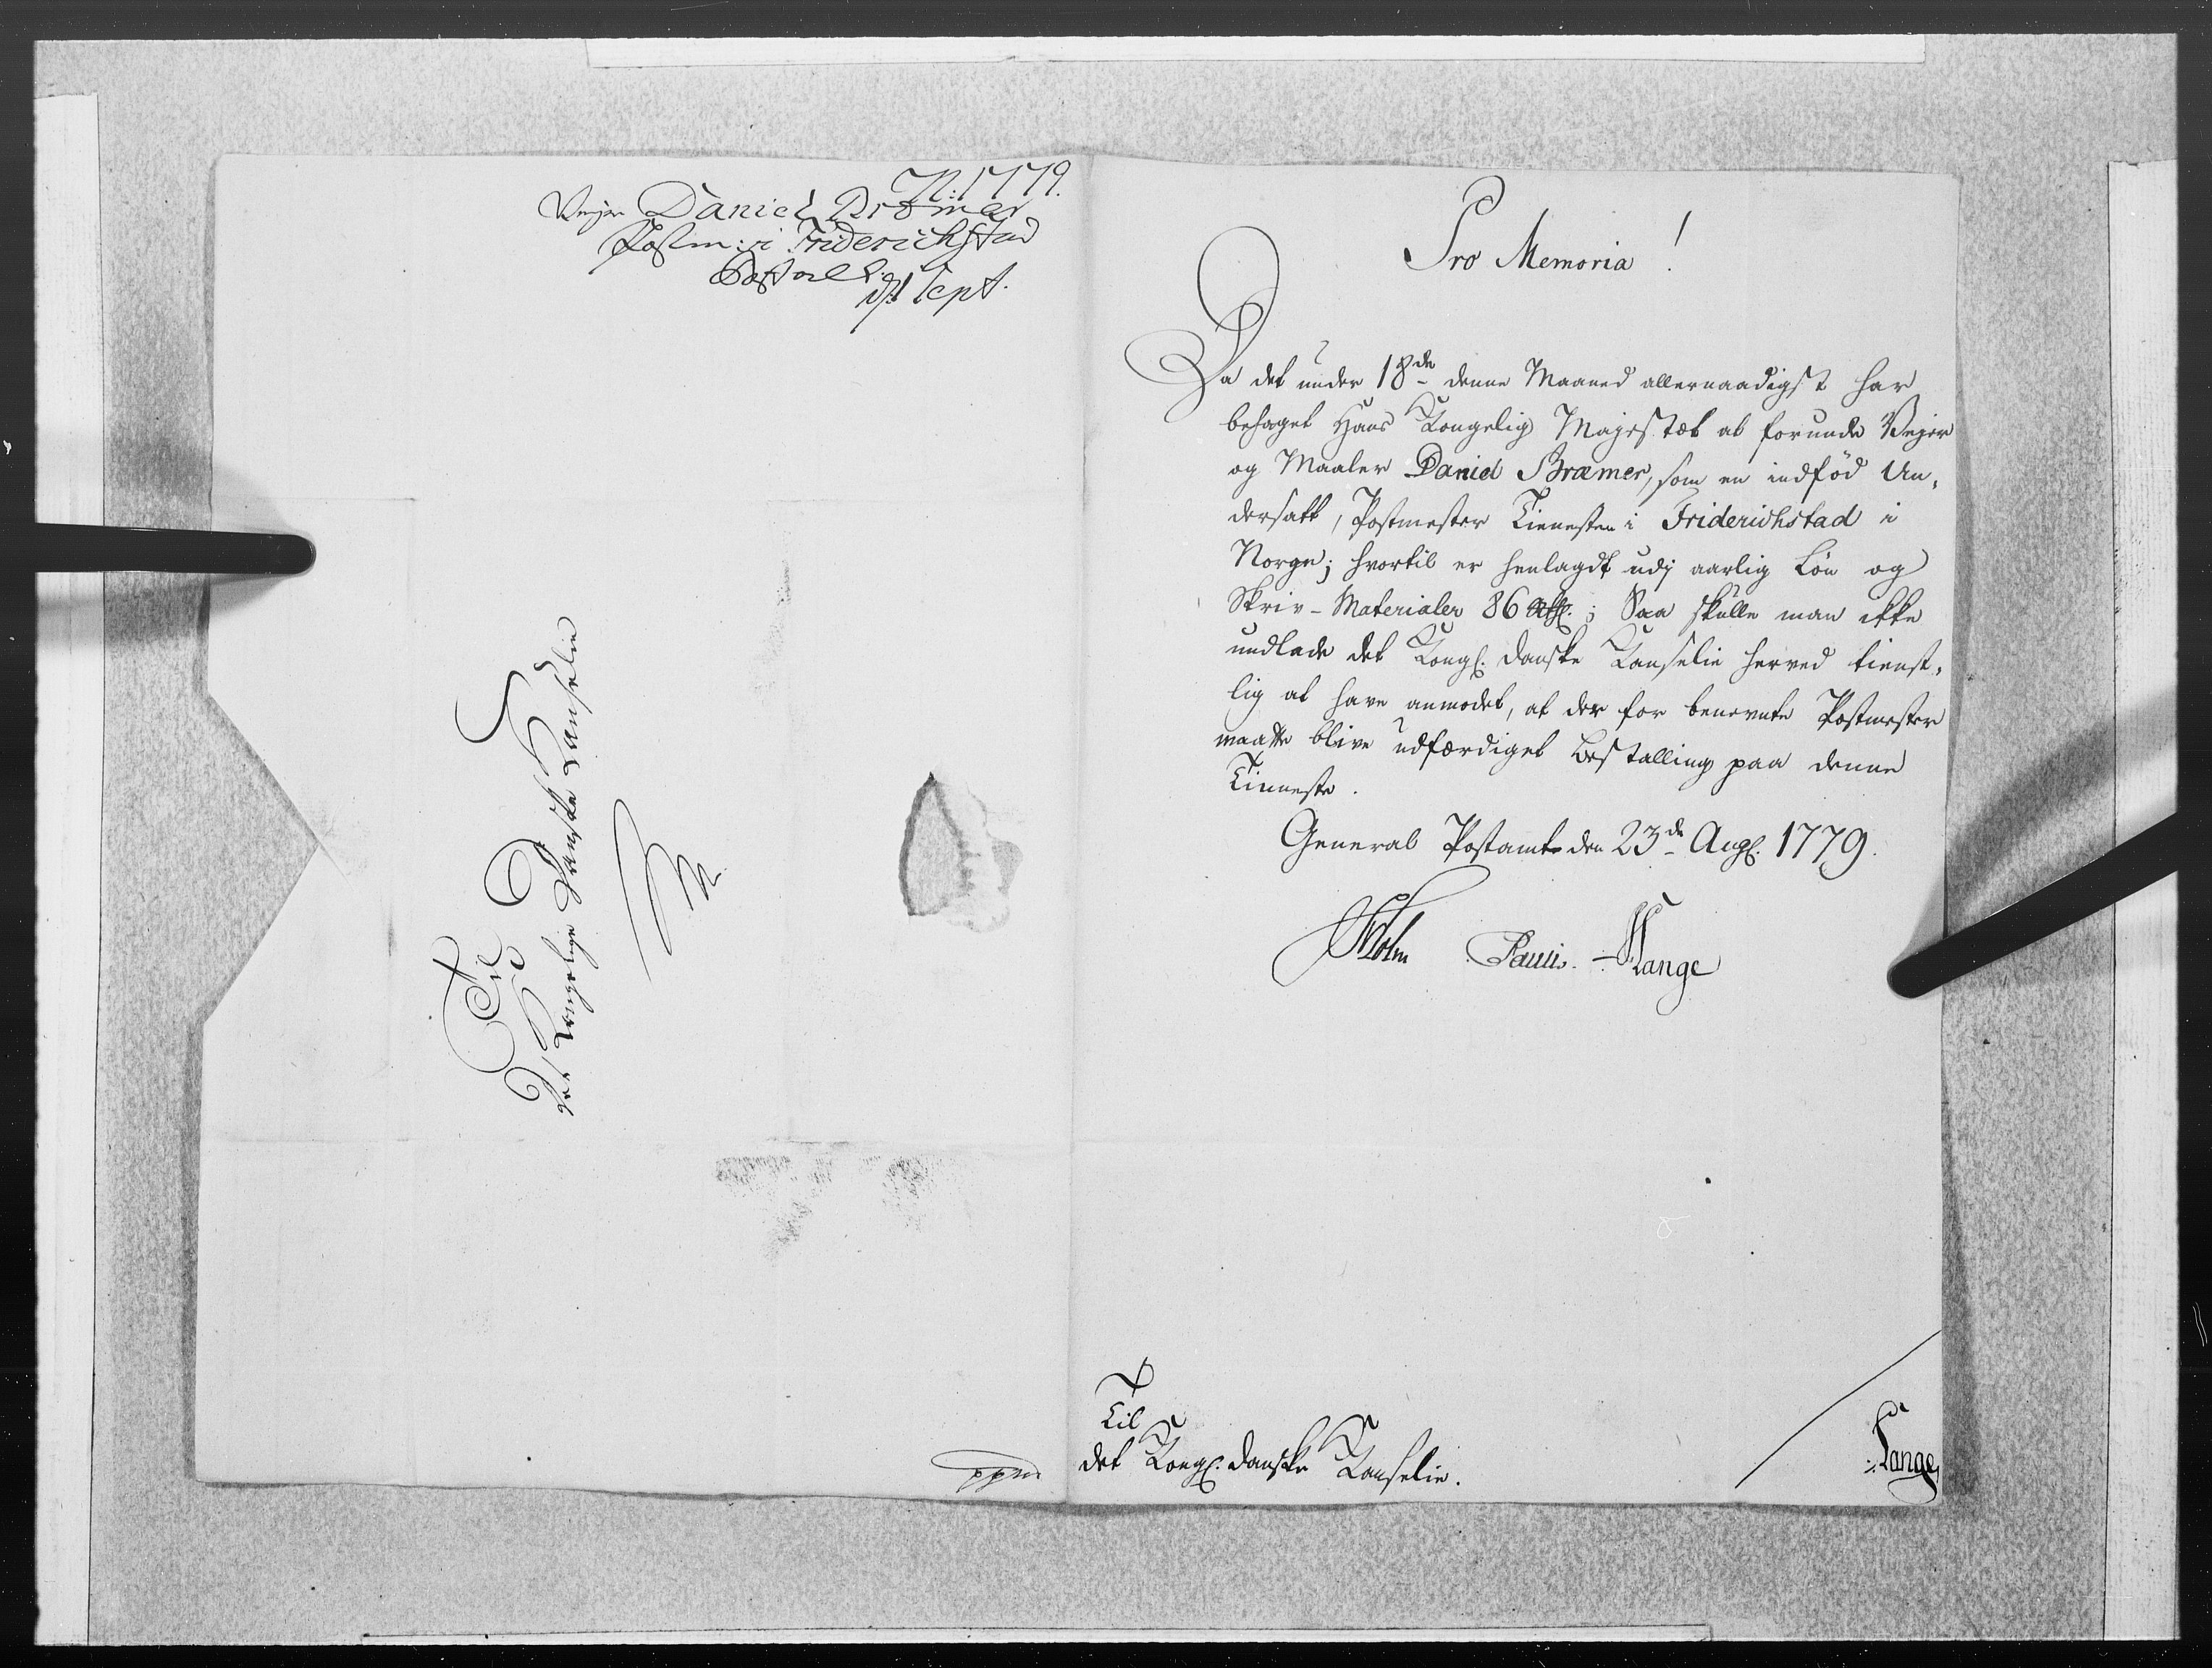 N: 1779.
Vejer Daniel Bræmer
Postm: i Friderichstad
Bestall:
d: 1 Sept.
Til
Det Kongelige Danske Canselie
Pro Memoria!
Da det under 18de denne Maaned allernaadigst har
behaget Hans Kongelig Majestæt at forunde Vejer
og Maaler Daniel Bræmer, som en indfød Un-
dersatt, Postmester Tienesten i Friderichstad i
Norge; hvortil er henlagdt udj aarlig Løn og
Skriv-Materialer 86 Rthl.; Saa skulle man ikke
undlade det Kongl. danske Kanselie herved tienst-
lig at have anmodet, at der for benevnte Postmester
maatte blive udfærdiget Bestalling paa denne
Tienneste.
General Postamt den 23de Augl. 1779.
Holm Paulli. Lange
Til
det Kongl. danske Kanselie.
Lange